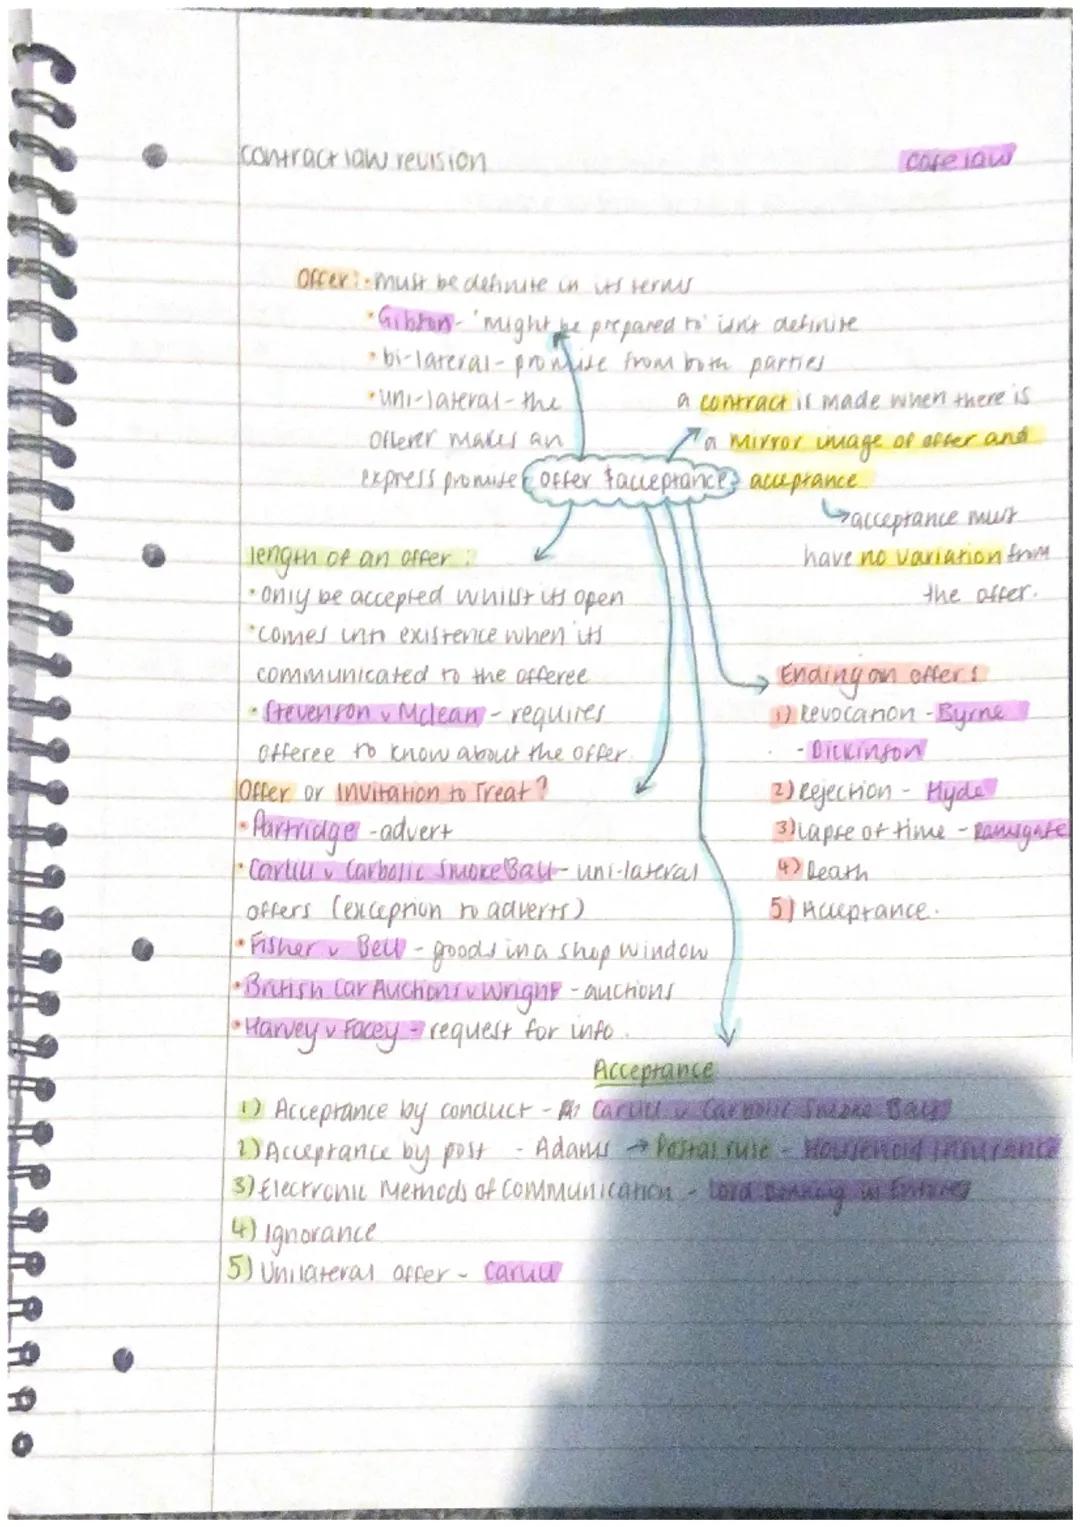 contract law revision
case law
Offer: • must be definite in its terms
• Gibson - 'might be prepared to' isn't definite
• bi-lateral - promise from both parties
• uni-lateral - the
offerer makes an
express promise
offer & acceptance
a contract is made when there is
a mirror image of offer and
acceptance
↳ acceptance must
have no variation from
the offer.
length of an offer:
• only be accepted whilst its open
• comes into existence when its
communicated to the offeree
• Stevenson v Mclean - requires
offeree to know about the offer.
Ending an offer:
1) Revocation - Byrne
- Dickinson
2) Rejection - Hyde
3) lapse of time - Ramsgate
4) Death
5) Acceptance.
Offer or Invitation to Treat?
• Partridge - advert
• Carlill v Carbolic Smoke Ball - uni-lateral
offers (exception to adverts)
• Fisher v Bell - goods in a shop window
• British Car Auctions v Wright - auctions
• Harvey v Facey - request for info.
Acceptance
1) Acceptance by conduct - Carlill v Carbolic Smoke Ball
2) Acceptance by post - Adams → Postal rule - Household Insurance
3) Electronic Methods of Communication - Lord Denning in Entores
4) Ignorance
5) Unilateral offer - Carlill